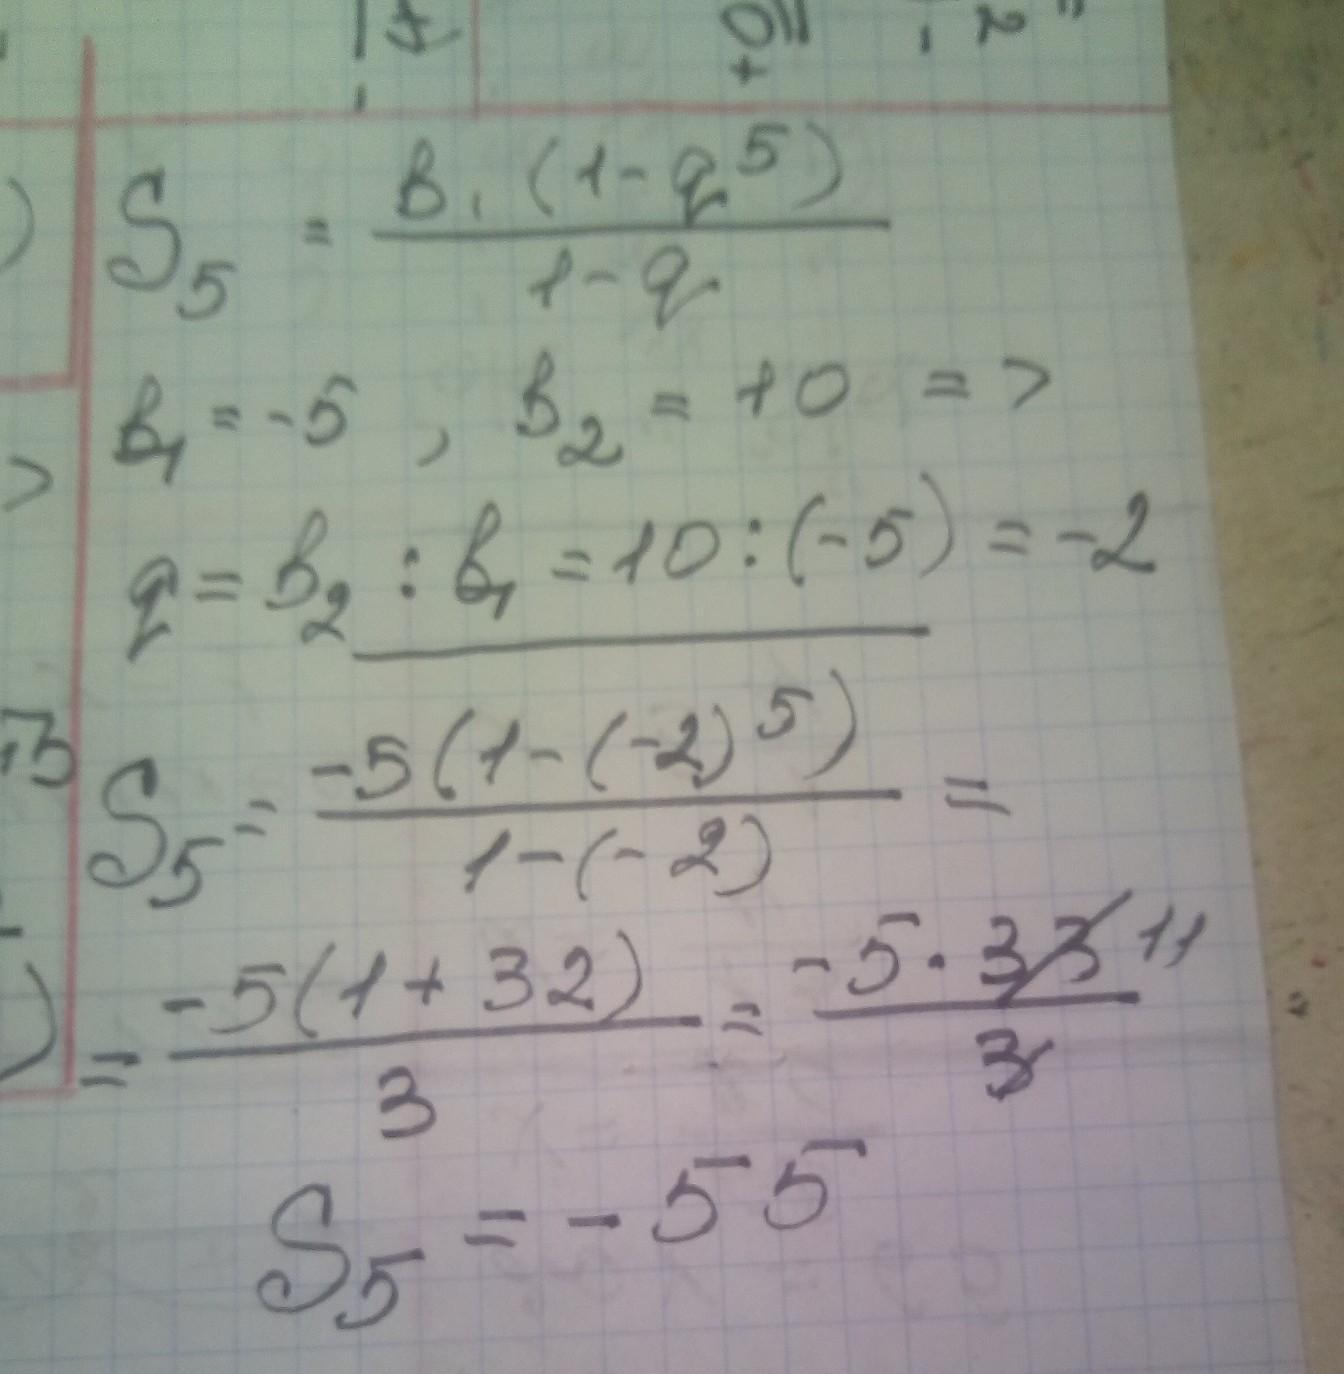 S₅ = b₁(1-q⁵) / 1-q
b₁ = -5, b₂ = 10 =>
q = b₂ : b₁ = 10 : (-5) = -2
S₅ = -5(1-(-2)⁵) / 1-(-2) =
= -5(1+32) / 3 = -5·33 11 / 3
S₅ = -55